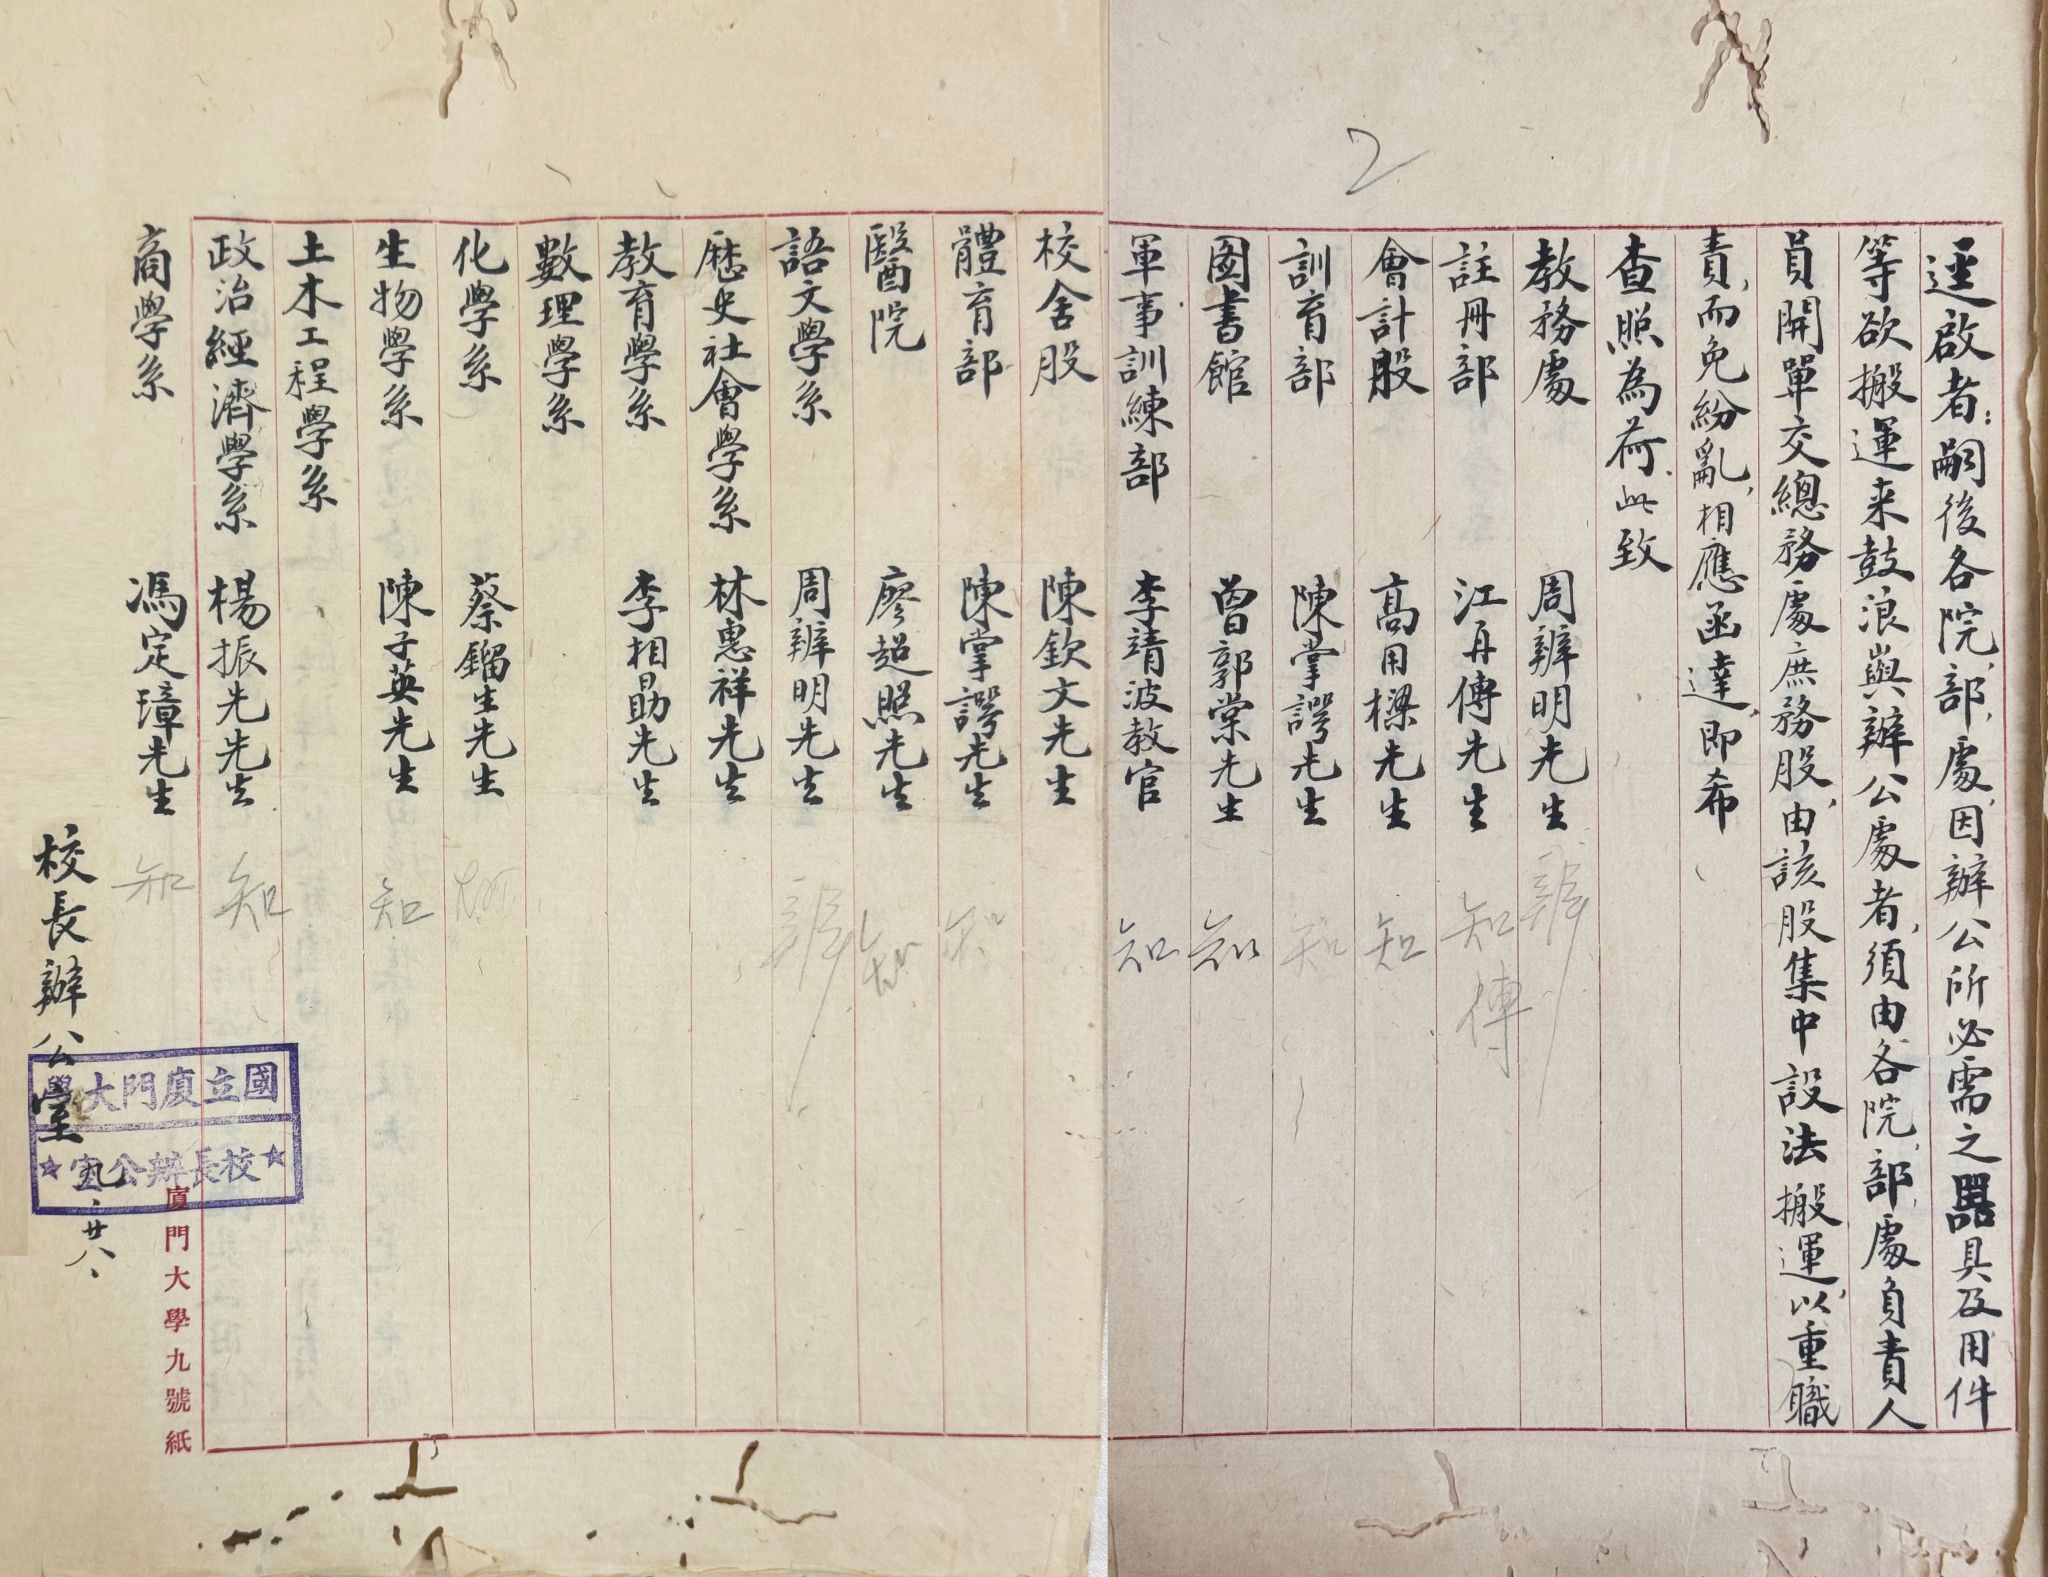 2
逕啟者:嗣後各院,部,處,因辦公所必需之器具及用件
等欲搬運来鼓浪嶼辦公處者,須由各院,部,處負責人
員開單交總務處庶務股,由該股集中設法搬運,以重職
責,而免紛亂,相應函達,即希
查照為荷.此致
教務處 周辨明先生 辨
註冊部 江再傳先生 知 傳
會計股 高用樑先生 知
訓育部 陳掌諤先生 知
圖書館 曾郭棠先生 知
軍事訓練部 李靖波教官 知
校舍股 陳欽文先生
體育部 陳掌諤先生 知
醫院 廖超照先生 知
語文學系 周辨明先生 辨
歷史社會學系 林惠祥先生
教育學系 李相勗先生
數理學系
化學系 蔡鎦生先生
生物學系 陳子英先生 知
土木工程學系
政治經濟學系 楊振先先生 知
商學系 馮定璋先生 知
校長辦公室 九、廿八、
國立廈門大學
★校長辦公室★
廈門大學九號紙